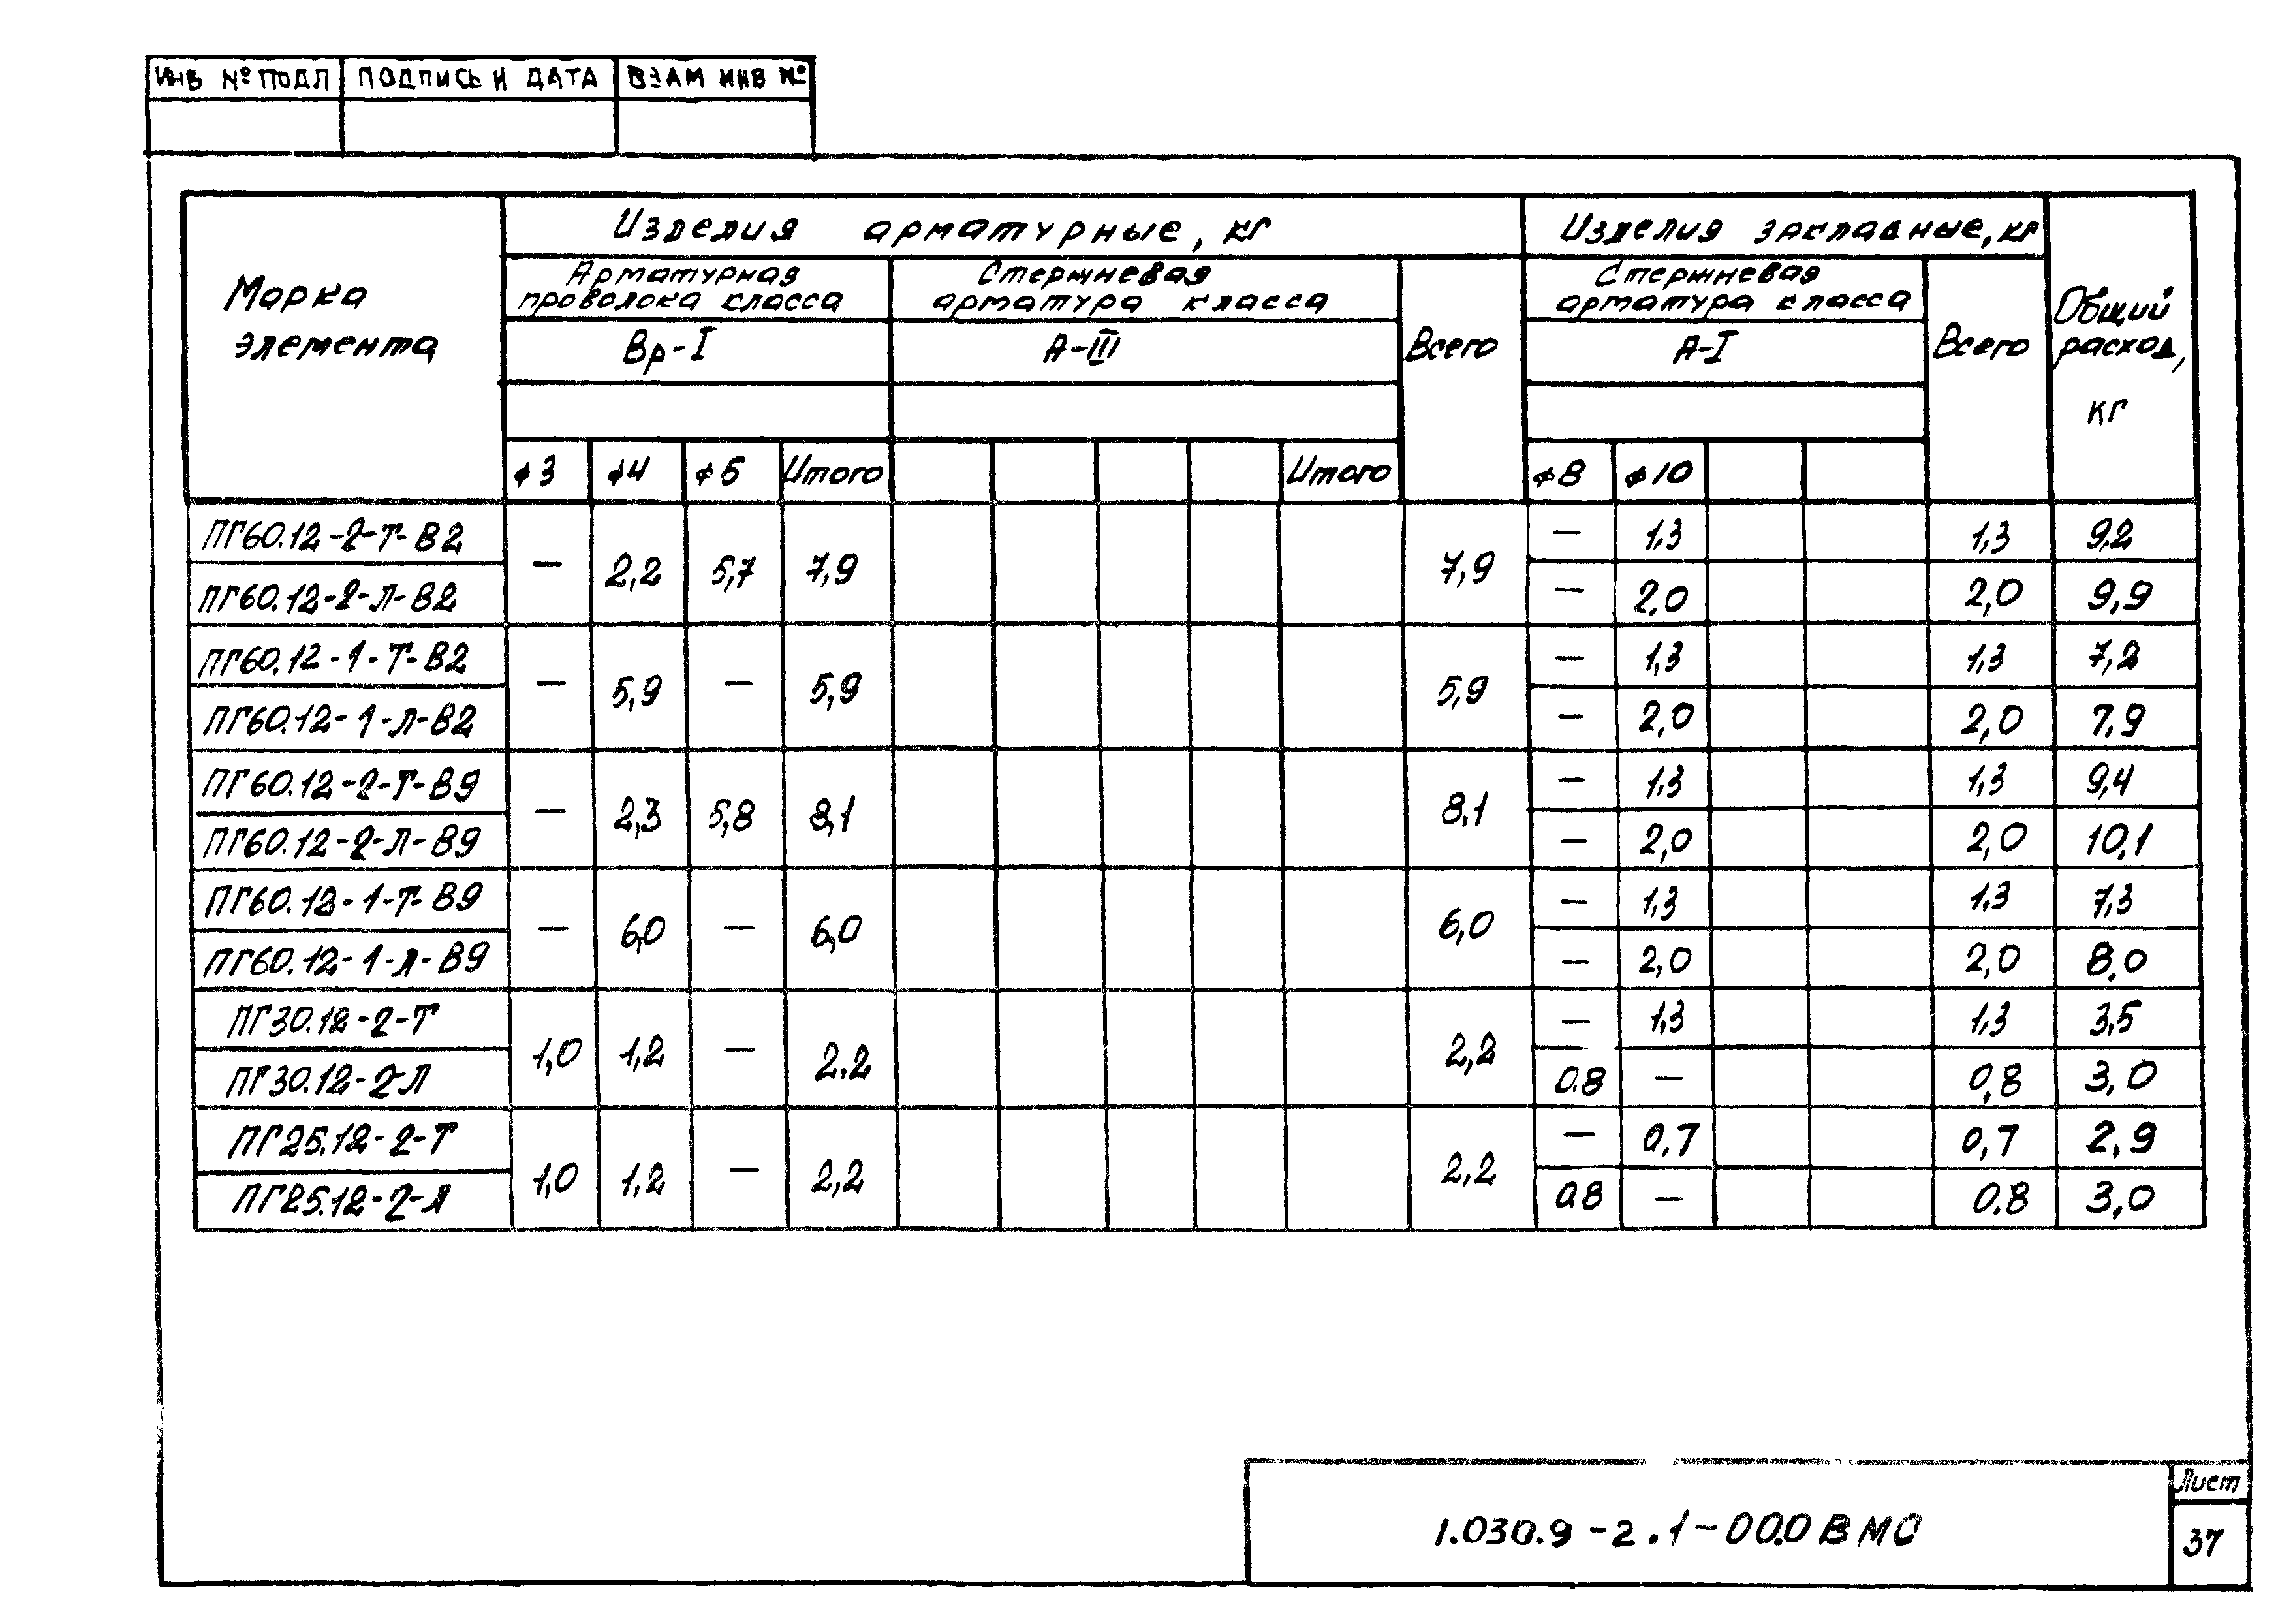 ИНВ № ПОДЛ ПОДПИСЬ И ДАТА ВЗАМ ИНВ №
Марка элемента
Изделия арматурные, кг
Изделия закладные, кг
Общий расход, кг
Арматурная проволока класса
Стержневая арматура класса
Всего
Стержневая арматура класса
Всего
Вр-I
А-III
А-I
ф3 ф4 ф5 Итого Итого ф8 ф10
ПГ60.12-2-Т-В2 — 2,2 5,7 7,9 7,9 — 1,3 1,3 9,2
ПГ60.12-2-Л-В2 — 2,0 2,0 9,9
ПГ60.12-1-Т-В2 — 5,9 — 5,9 5,9 — 1,3 1,3 7,2
ПГ60.12-1-Л-В2 — 2,0 2,0 7,9
ПГ60.12-2-Т-В9 — 2,3 5,8 8,1 8,1 — 1,3 1,3 9,4
ПГ60.12-2-Л-В9 — 2,0 2,0 10,1
ПГ60.12-1-Т-В9 — 6,0 — 6,0 6,0 — 1,3 1,3 7,3
ПГ60.12-1-Л-В9 — 2,0 2,0 8,0
ПГ30.12-2-Т 1,0 1,2 — 2.2 2,2 — 1,3 1,3 3,5
ПГ30.12-2-Л 0.8 — 0,8 3,0
ПГ25.12-2-Т 1,0 1,2 — 2,2 2,2 — 0,7 0,7 2,9
ПГ25.12-2-Л 0.8 — 0.8 3,0
1.030.9-2.1-00.0 ВМС
Лист
37